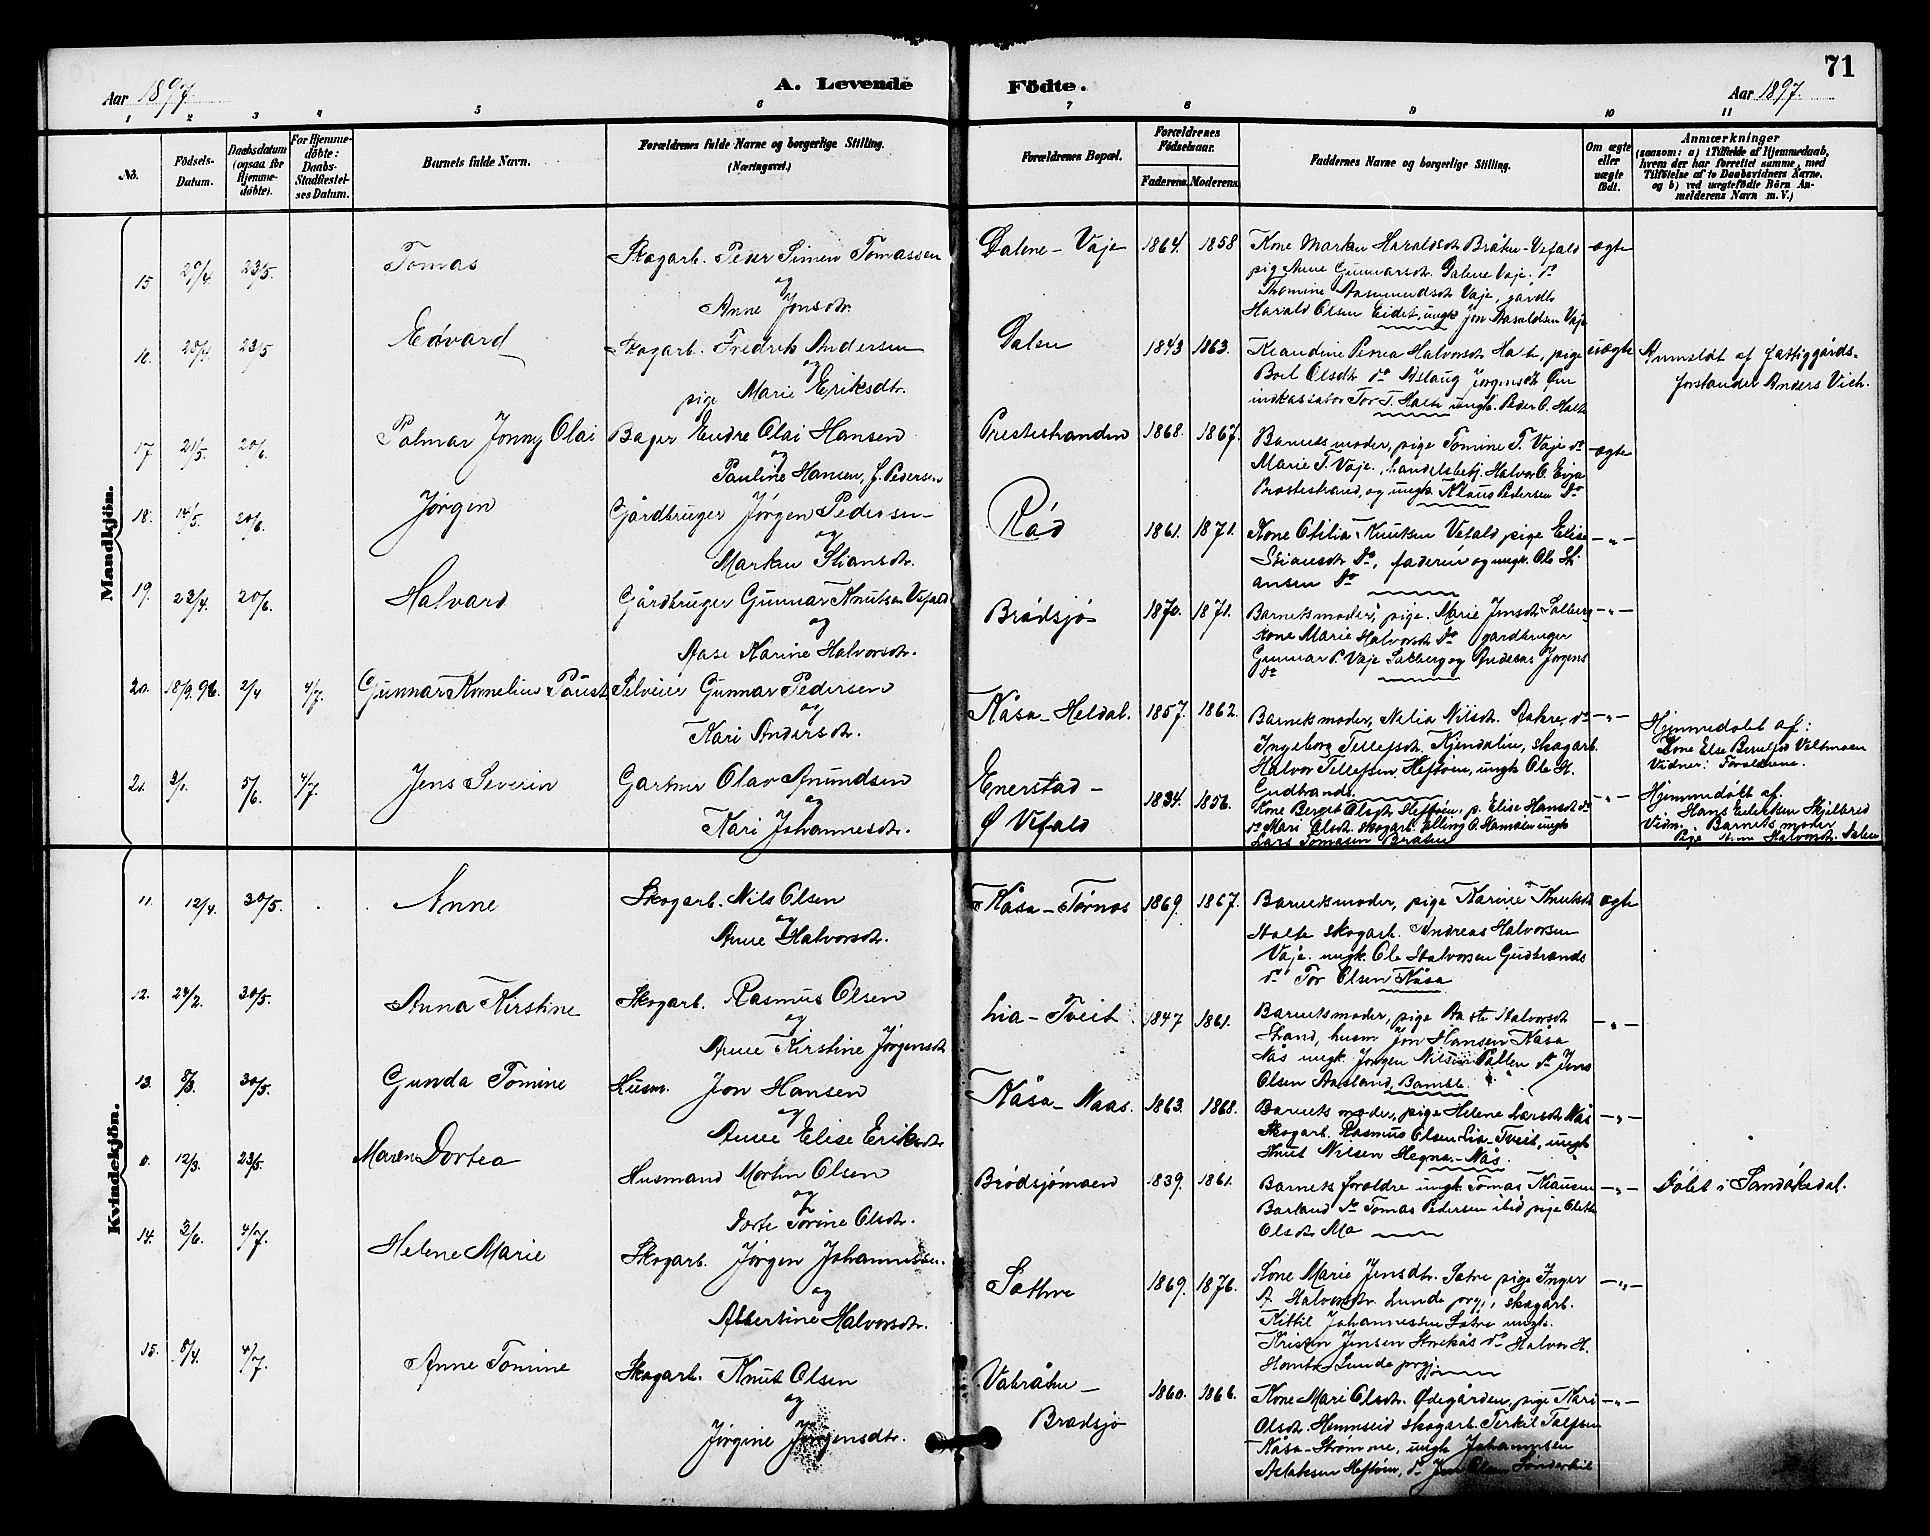 71
Aar 1897
A. Levende Födte.
Aar 1897.
1 2 3 4 5 6 7 8 9 10 11
No.
Födsels-Datum.
Daabsdatum (ogsaa för Hjemme-döbte).
For Hjemme-döbte: Daabs-Stadfæstel-ses Datum.
Barnets fulde Navn.
Forældrenes fulde Navne og borgerlige Stilling. (Næringsvei.)
Forældrenes Bopæl.
Forældrenes Födselsaar.
Faderens. Moderens.
Faddernes Navne og borgerlige Stilling.
Om ægte eller uægte födt.
Anmærkninger
(saasom: a) i Tilfælde af Hjemmedaab, hvem der har forrettet samme, med Tilföielse af to Daabsvidners Navne. og b) ved uægtefödte Börn An-melderens Navn m. V.)
Mandkjön.
15 29/4. 23/5. Tomas
Skogarb. Peder Simen Tomassen
og
Anne Jonsdtr.
Dalene - Vaje 1864. 1858
Kone Marken Haraldsdt Bråten - Vefald ægte
pig Anne Gunnarsdt. Dalene Vaje. do
Thomine Aasmundsdt Vaje, gårdbr
Harald Olsen Eidet, ungk Jon Haraldsen Vaje
23/5 Edvard
Skogarb. Fredrik Andersen
og
pige Marie Eriksdtr.
Dalen 1843 1863.
Klandine Halvorsdt Halte, pige uægte
Boel Olsdtr do Aslaug Jørgensdt
indkassator Tor T. Halte ungk. Peder O. Halte
Anmeldt af fattiggårds-
forstander Anders Vieh.
17 21/5. 20/6. Palmar Jonny Olai
Bager Endre Olai Hansen
og
Pauline Hansen, f. Pedersen
Prestestranden 1868. 1867.
Barnets moder, pige Tomine T. Vaje do ægte
Marie T. Vaje, handelsbetj. Halvor O. Evja
Prestestrand, og ungk. Klaus Pedersen do
18. 14/5. 20/6. Jørgen
Gårdbruger Jørgen Pedersen
og
Marken Stiansdtr.
Råd 1861. 1871.
Kone Otilia Knutsen Vefald pige Elise -"-
Stiansdt do, faderen og ungk. Ole Sti
ansen do
19. 23/4. 20/6. Halvard
Gårdbruger Gunnar Knutsen Vefald
og
Aase Karine Halvorsdtr.
Brødsjø 1870. 1871.
Barnets moder, pige. Marie Jensdt Salberg -"-
kone Marie Halvorsdt do gardbruger
Gunnar P. Vaje Salberg og Andreas Jørgens
do
20. 18/9. 96. 2/4 4/7. Gunnar Kornelius Paust
Selveier Gunnar Pedersen
og
Kari Andersdtr.
Kåsa - Heldal. 1857. 1862.
Barnets moder, Nilia Nilsdt. Aakre, do -"-
Ingeborg Tellefsdt. Kjendalen, skogarb.
Halvor Tellefsen, Heftøen, ungk Ole H.
Gudbrands.
Hjemmedøbt af:
Kone Else Veltmoen
Vidner: Foreldrene.
21 2/1. 5/6. 4/7. Jens Severin
Gartner Olav Anundsen
og
Kari Johannesdtr.
Enerstad -
Ø Vefald
1834. 1856.
Kone Berget Olsdt Heftøen, p. Elise Hansdt do -"-
do Mari Olsdt. skogarb. Elling O. ungk
Lars Tomasen Bråten
Hjemmedøbt af.
Hans Eriksen Skjelbred
Vidn: Barnets moder
Pige Halvorsdt. Dalen
Kvindekjön.
11. 12/4. 30/5. Anne
Skogarb. Nils Olsen
og
Anne Halvorsdtr.
Kåsa - Tørnas 1869. 1867.
Barnets moder, pige Karine Knutsdt ægte
Halte skogarb. Andreas Halvorsen
Vaje. ungk. Ole Halvorsen Gudbrands
do Tor Olsen Kåsa
12. 24/2. 30/5. Anna Kirstine
Skogarb. Rasmus Olsen
og
Anne Kirstine Jørgensdt
Lia - Tveit. 1847 1861.
Barnets moder, pige Halvorsdt -"-
Strand, husm Jon Hansen Kåsa
Nås ungk Jørgen Nilsen do Jens
Olsen Aasland, Bamble.
13. 8/3. 30/5. Gunda Tomine
Husm. Jon Hansen
og
Anne Elise Eriksdt
Kåsa - Naas. 1863. 1868.
Barnets moder, pige Helene Larsdt Nås -"-
Skogarb. Rasmus Olsen Lia-Tveit, ungk
Knut Nilsen Hegna - Nås.
0. 12/3. 23/5. Maren Dortea
Husmand Mortin Olsen
og
Dorte Torine Olsdtr.
Brødsjømoen 1839. 1861.
Barnets foreldre ungk. Tomas Klausen -"-
Barland do Tomas Pedersen ibid pige Olette
Olsdt Mo
Døbt i Sandøkedal.
14. 3/6. 4/7. Helene Marie
Skogarb. Jørgen Johannessen.
og
Albertine Halvorsdtr.
Sathre 1869. 1876.
Kone Marie Jensdtr. Satre pige Inger -"-
A. Halvorsdtr. Lunde prgj, skogarb.
Kittil Johannessen Satre ungk.
Kristen Jensen do Halvor H.
Lunde prgj.
15. 5/4. 4/7. Anne Tomine
Skogarb. Knut Olsen
og
Jørgine Jørgensdtr.
Vabråten -
Brødsjø
1860. 1866.
Kone Mari Olsdt. Ødegården, pige Kari -"-
Olsdt. Hemnseid skogarb. Terkil Tolfsen
Kåsa - Strømme, ungk. Johannesen
Aslaksen Heftøen, do Olsen Sønderbøl